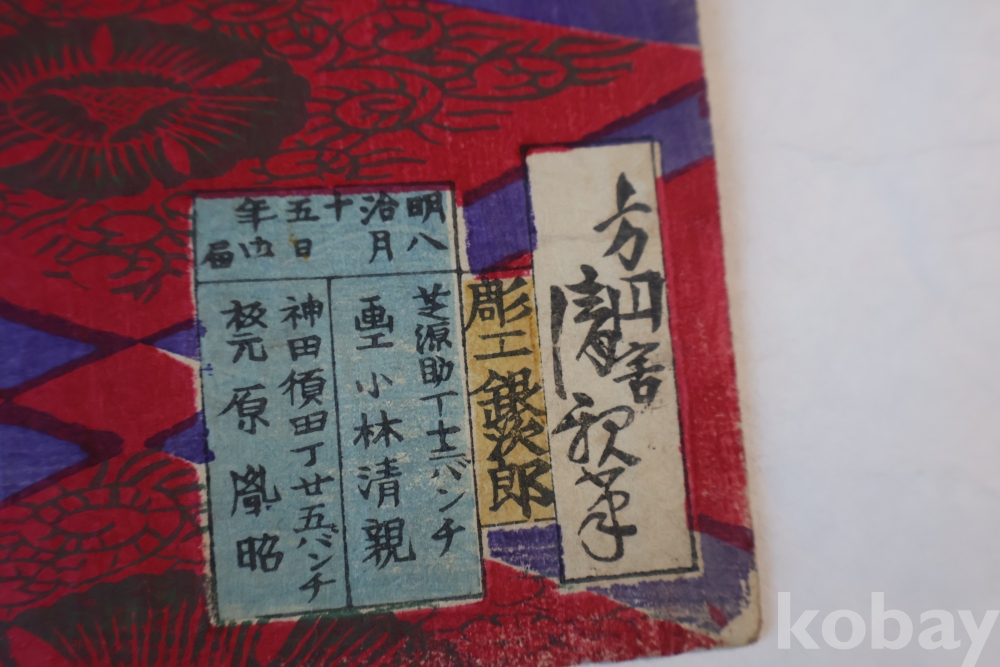 方円舎
清親筆
彫工銀次郎
明治十五年
八月 日御届
芝源助丁十三バンチ
画工 小林清親
神田須田丁廿五バンチ
板元 原胤昭
kobay